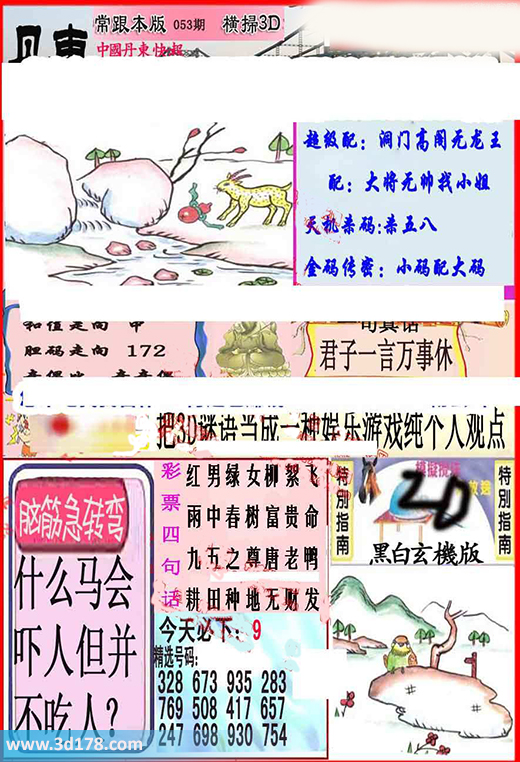 丹東
常跟本版 053期 横掃3D
中國丹東快報
超级配：洞门高阁无龙王
配：大将无帅找小姐
天机杀码:杀五八
金码传密：小码配大码
和值走向 中
胆码走向 172
一句真话
君子一言万事休
把3D谜语当成一种娱乐游戏纯个人观点
脑筋急转弯
什么马会
吓人但并
不吃人？
彩票四句话
红男绿女柳絮飞
雨中春树富贵命
九五之尊唐老鸭
耕田种地无财发
今天必下：9
精选号码：
328 673 935 283
769 508 417 657
247 698 930 754
特别指南
2D
特别指南
黑白玄機版
www.3d178.com